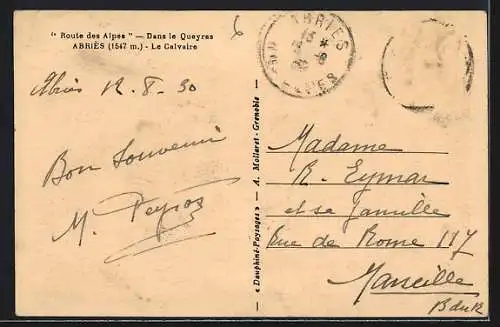 " Route des Alpes " — Dans le Queyras
ABRIÈS (1547 m.) - Le Calvaire
Abriès 12-8-30
Bon Souvenir
M. Peyron
« Dauphiné-Paysages » — A. Mollaret - Grenoble
ABRIES
Madame
R. Eymar
et sa famille
Rue de Rome 117
Marseille
B du R